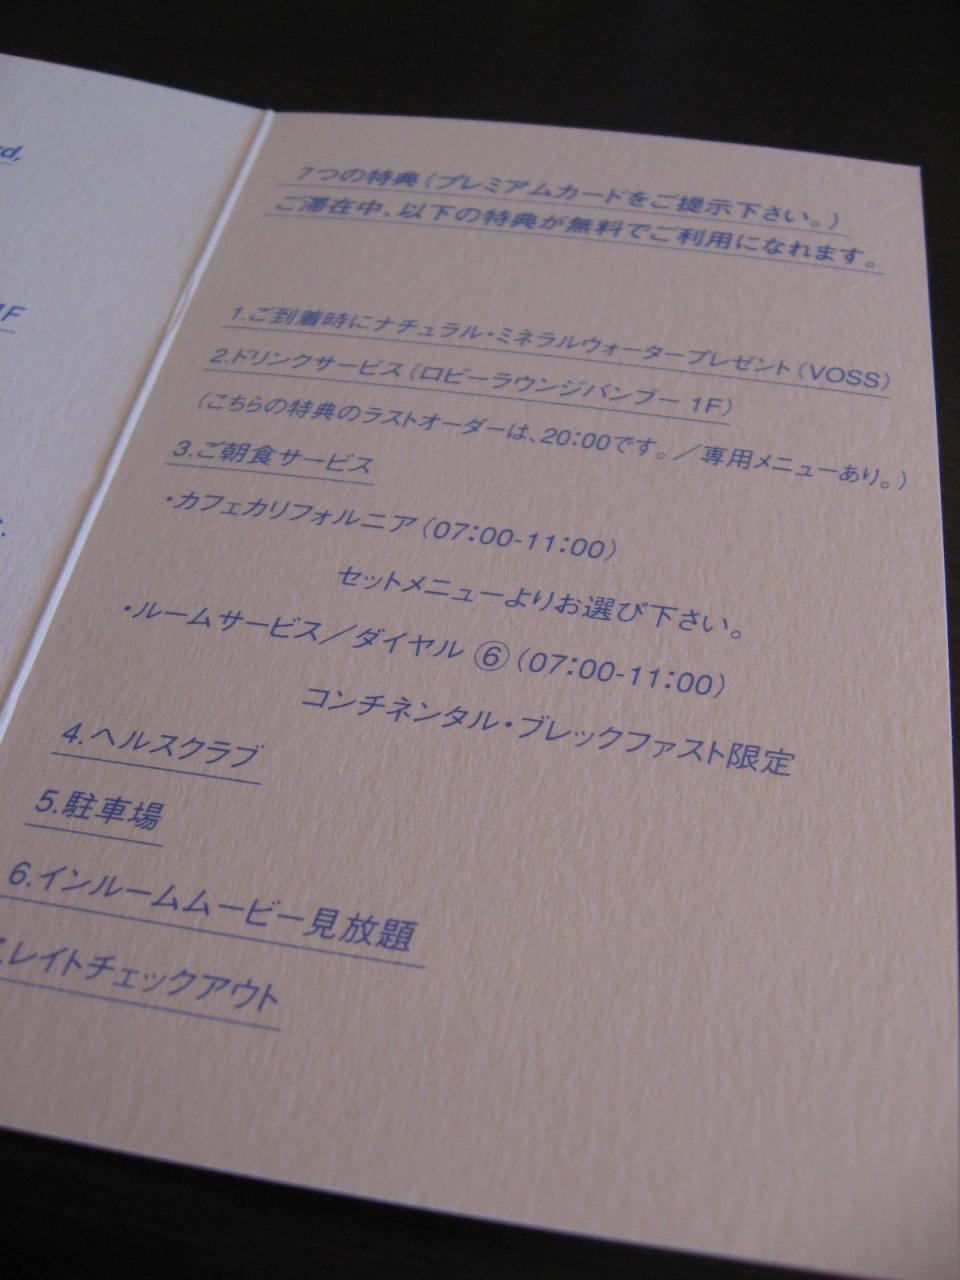 d,
1F
7つの特典(プレミアムカードをご提示下さい。)
ご滞在中、以下の特典が無料でご利用になれます。
1.ご到着時にナチュラル・ミネラルウォータープレゼント(VOSS)
2.ドリンクサービス(ロビーラウンジバンブー 1F)
(こちらの特典のラストオーダーは、20:00です。/専用メニューあり。)
3.ご朝食サービス
・カフェカリフォルニア(07:00-11:00)
セットメニューよりお選び下さい。
・ルームサービス/ダイヤル ⑥(07:00-11:00)
コンチネンタル・ブレックファスト限定
4.ヘルスクラブ
5.駐車場
6.インルームムービー見放題
7.レイトチェックアウト